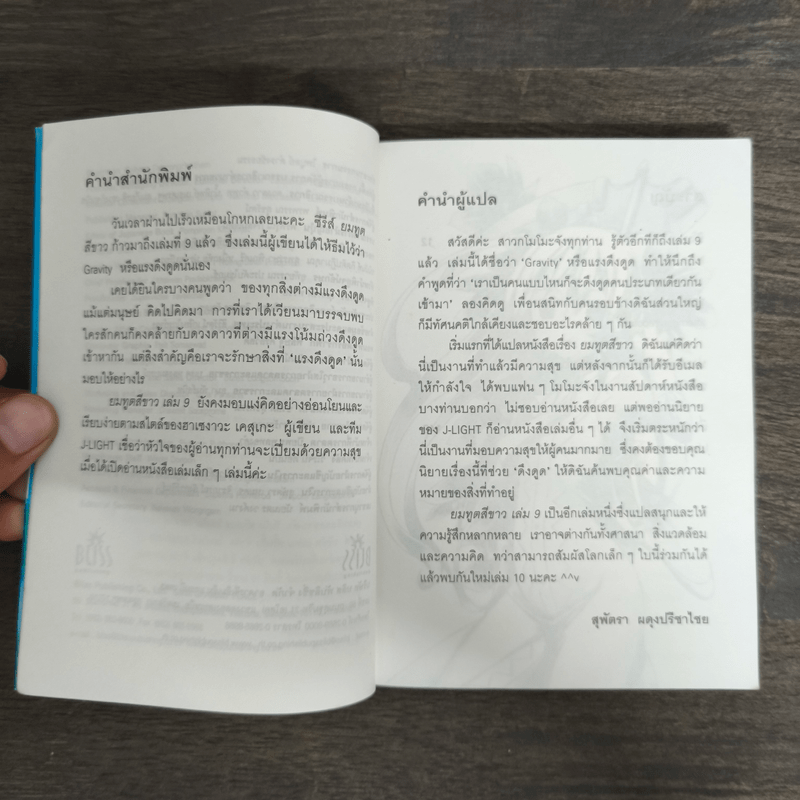 คำนำสำนักพิมพ์
วันเวลาผ่านไปเร็วเหมือนโกหกเลยนะคะ ซีรีส์ ยมทูต
สีขาว ก้าวมาถึงเล่มที่ 9 แล้ว ซึ่งเล่มนี้ผู้เขียนได้ให้ธีมไว้ว่า
Gravity หรือแรงดึงดูดนั่นเอง
เคยได้ยินใครบางคนพูดว่า ของทุกสิ่งต่างมีแรงดึงดูด
แม้แต่มนุษย์ คิดไปคิดมา การที่เราได้เวียนมาบรรจบพบ
ใครสักคนก็คงคล้ายกับดวงดาวที่ต่างมีแรงโน้มถ่วงดึงดูด
เข้าหากัน แต่สิ่งสำคัญคือเราจะรักษาสิ่งที่ 'แรงดึงดูด' นั้น
มอบให้อย่างไร
ยมทูตสีขาว เล่ม 9 ยังคงมอบแง่คิดอย่างอ่อนโยนและ
เรียบง่ายตามสไตล์ของฮาเซงาวะ เคสุเกะ ผู้เขียน และทีม
J-LIGHT เชื่อว่าหัวใจของผู้อ่านทุกท่านจะเปี่ยมด้วยความสุข
เมื่อได้เปิดอ่านหนังสือเล่มเล็ก ๆ เล่มนี้ค่ะ
คำนำผู้แปล
สวัสดีค่ะ สาวกโมโมะจังทุกท่าน รู้ตัวอีกทีก็ถึงเล่ม 9
แล้ว เล่มนี้ได้ชื่อว่า 'Gravity' หรือแรงดึงดูด ทำให้นึกถึง
คำพูดที่ว่า 'เราเป็นคนแบบไหนก็จะดึงดูดคนประเภทเดียวกัน
เข้ามา' ลองคิดดู เพื่อนสนิทกับคนรอบข้างดิฉันส่วนใหญ่
ก็มีทัศนคติใกล้เคียงและชอบอะไรคล้าย ๆ กัน
เริ่มแรกที่ได้แปลหนังสือเรื่อง ยมทูตสีขาว ดิฉันแค่คิดว่า
นี่เป็นงานที่ทำแล้วมีความสุข แต่หลังจากนั้นก็ได้รับอีเมล
ให้กำลังใจ ได้พบแฟน ๆ โมโมะจังในงานสัปดาห์หนังสือ
บางท่านบอกว่า ไม่ชอบอ่านหนังสือเลย แต่พออ่านนิยาย
ของ J-LIGHT ก็อ่านหนังสือเล่มอื่น ๆ ได้ จึงเริ่มตระหนักว่า
นี่เป็นงานที่มอบความสุขให้ผู้คนมากมาย ซึ่งคงต้องขอบคุณ
นิยายเรื่องนี้ที่ช่วย 'ดึงดูด' ให้ดิฉันค้นพบคุณค่าและความ
หมายของสิ่งที่ทำอยู่
ยมทูตสีขาว เล่ม 9 เป็นอีกเล่มหนึ่งซึ่งแปลสนุกและให้
ความรู้สึกหลากหลาย เราอาจต่างกันทั้งศาสนา สิ่งแวดล้อม
และความคิด ทว่าสามารถสัมผัสโลกเล็ก ๆ ใบนี้ร่วมกันได้
แล้วพบกันใหม่เล่ม 10 นะคะ ^^v
สุพัตรา ผดุงปรีชาไชย